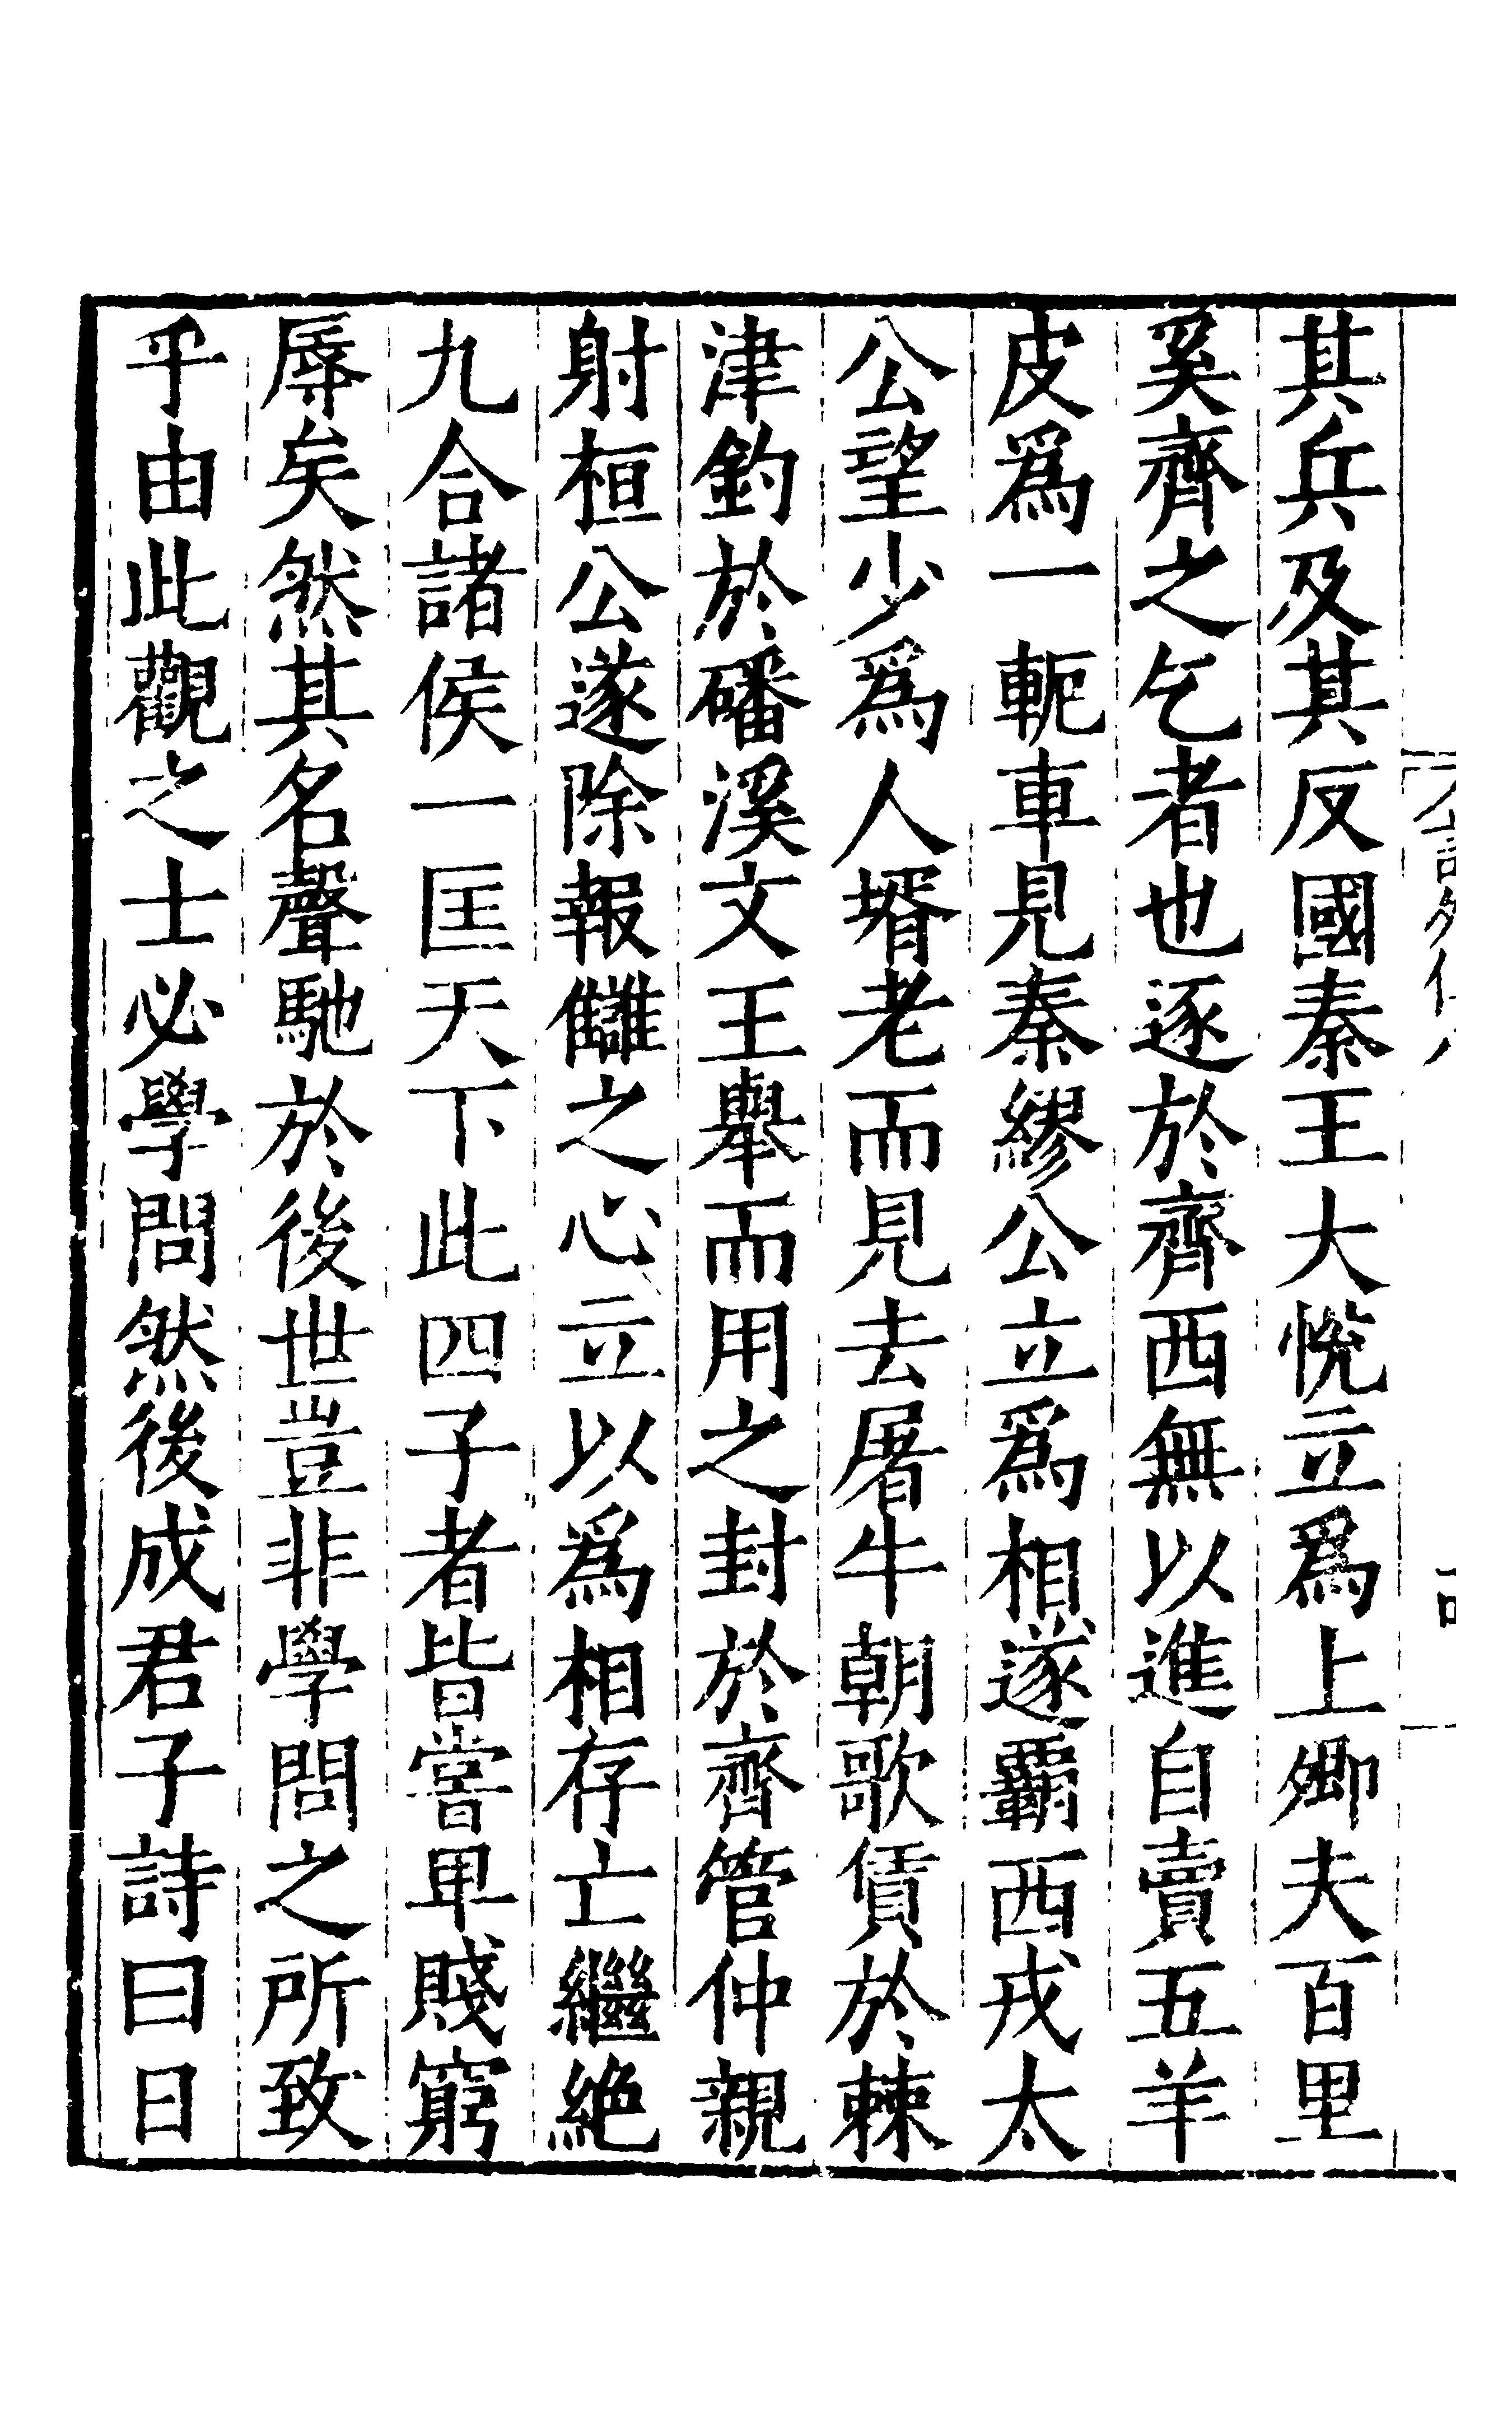 其兵及其反國秦王大悅立爲上卿夫百里
奚齊之乞者也逐於齊西無以進自賣五羊
皮爲一軛車見秦繆公立爲相遂霸西戎太
公望少爲人壻老而見去屠牛朝歌賃於棘
津釣於磻溪文王舉而用之封於齊管仲親
射桓公遂除報讎之心立以爲相存亡繼絶
九合諸侯一匡天下此四子者皆嘗卑賤窮
辱矣然其名聲馳於後世豈非學問之所致
乎由此觀之士必學問然後成君子詩曰日